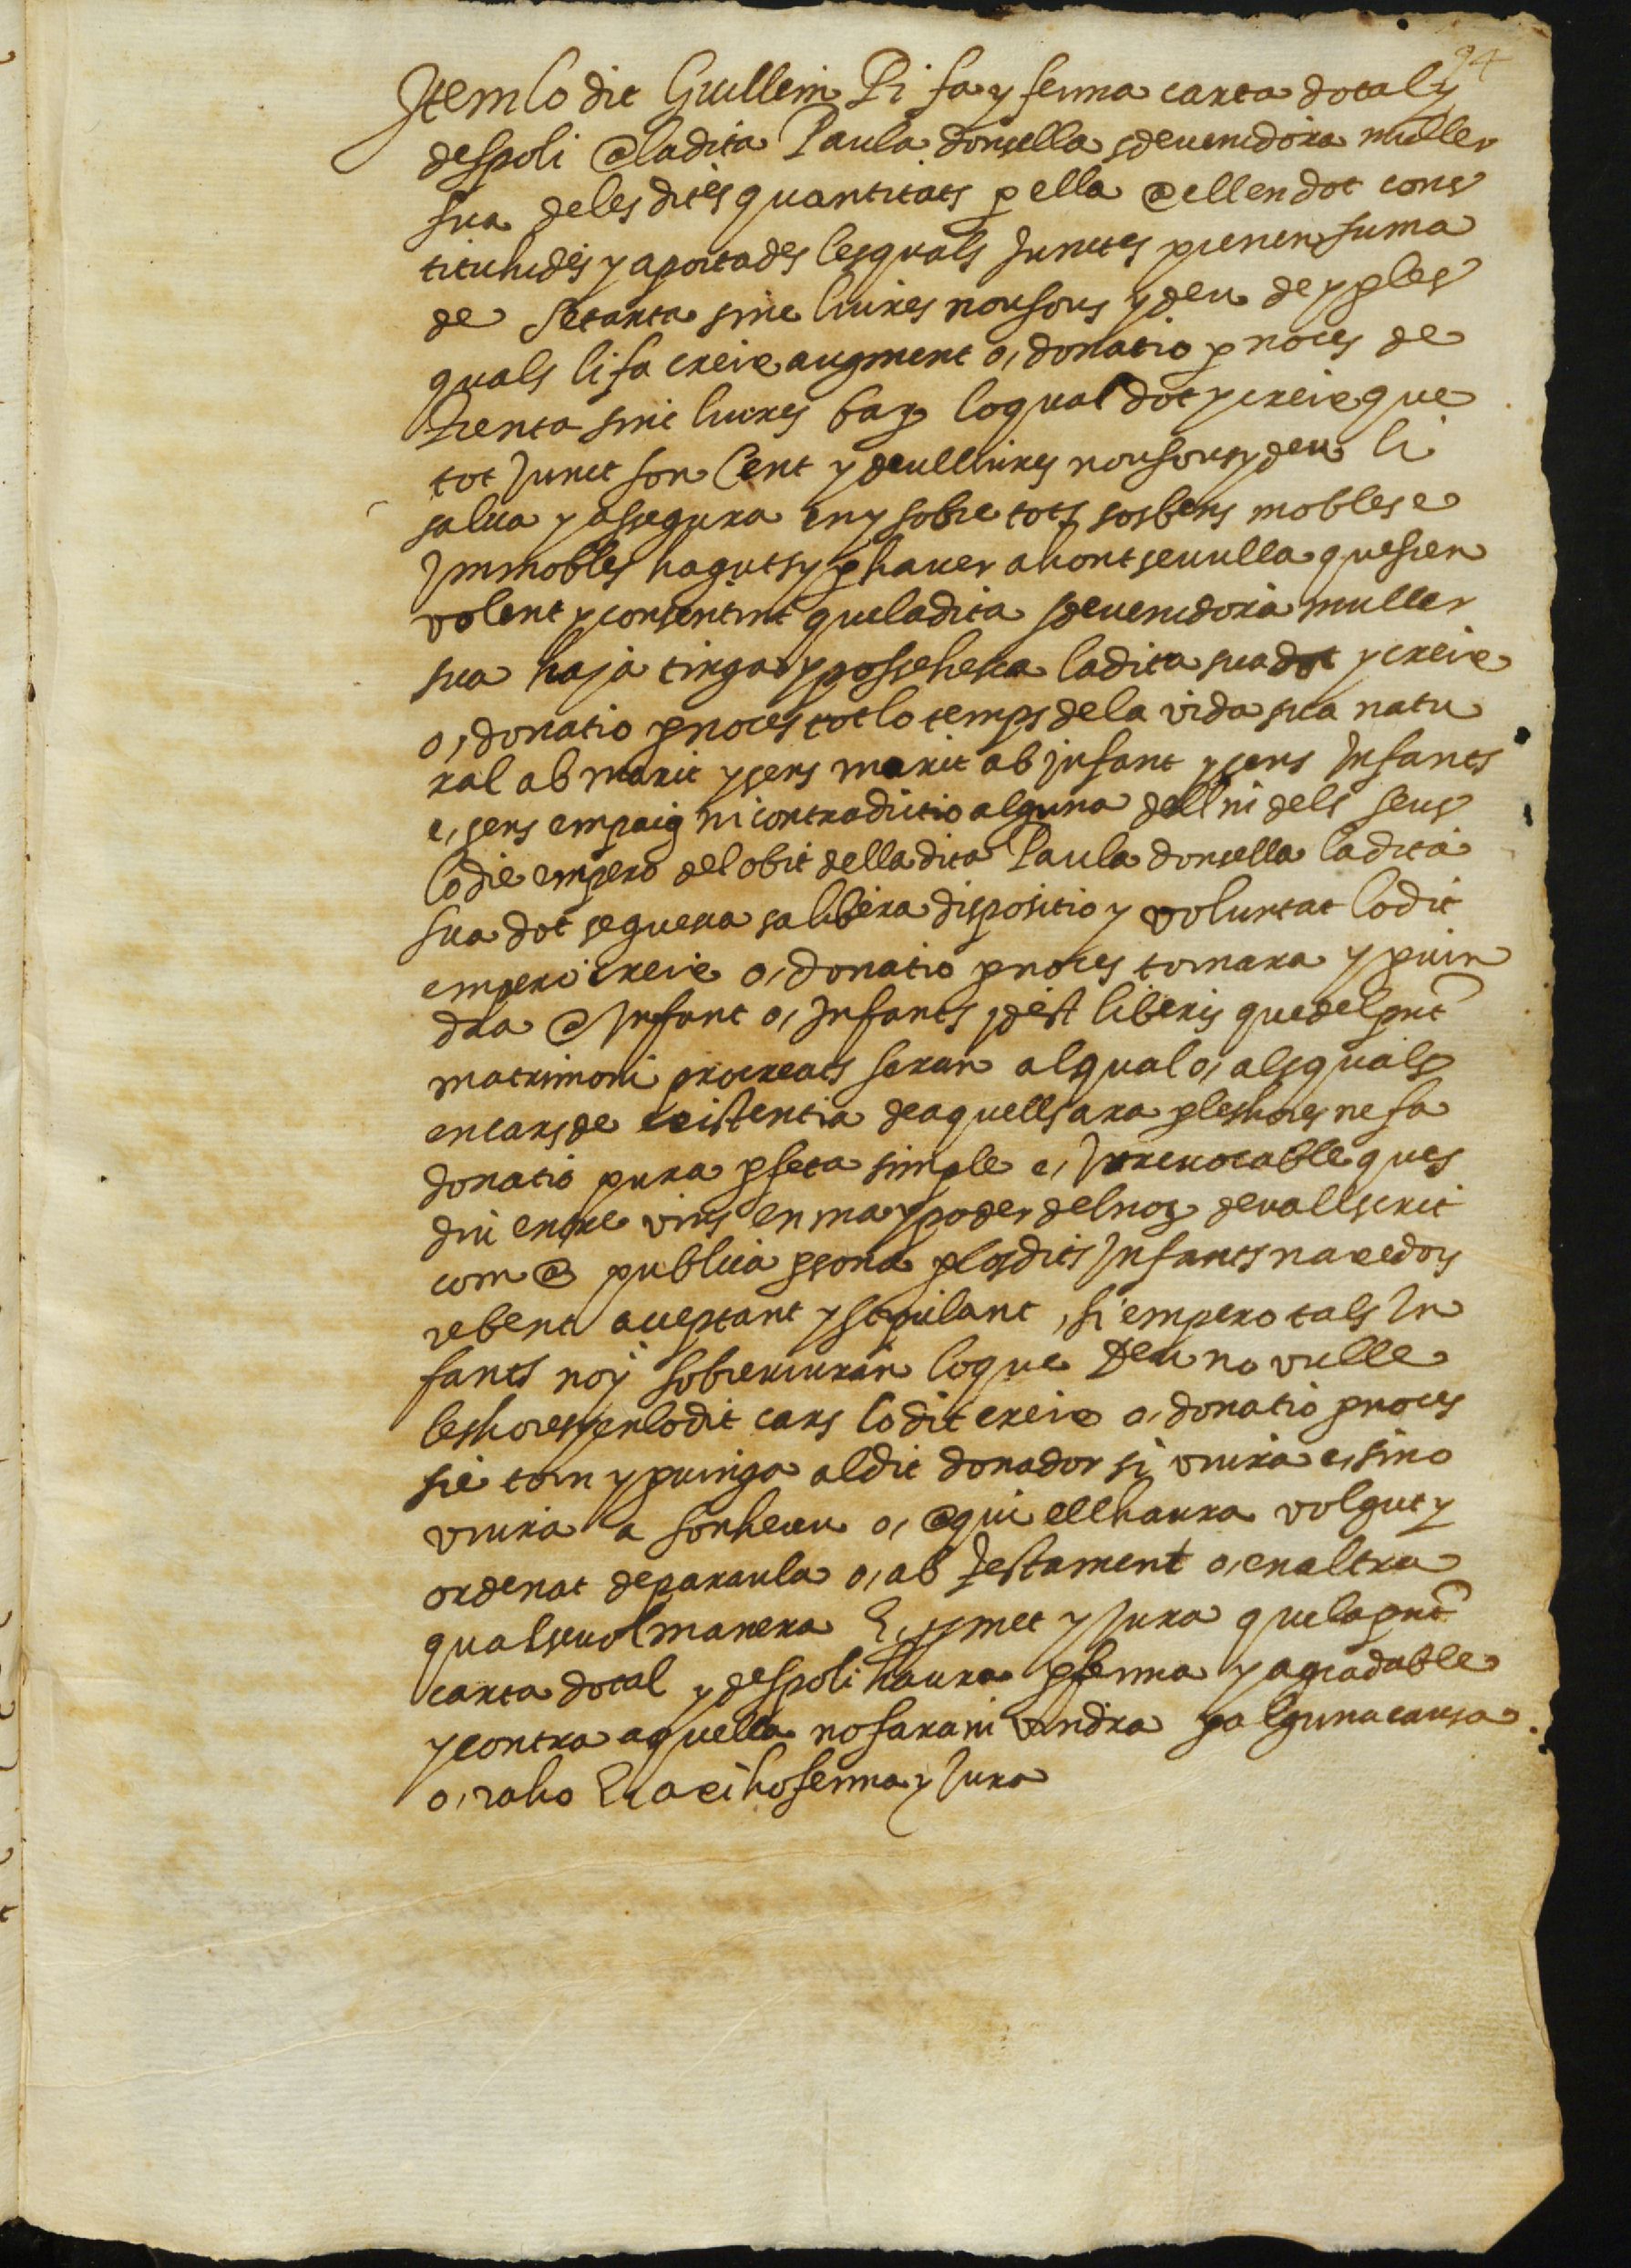 94
Item lo dit Guillem Pi fa y ferma carta dotal y
despoli a la dita Paula donsella sdevenidora muller
sua de les dites quantitats p ella a ell en dot cons
tituhides y aportades les quals junctes prenen suma
de setanta sinc liures nou sous y deu de y p les
quals li fa creix augment o, donatio p noces de
trenta sinc liures barç lo qual dot y creix que
tot junct son Cent y deu lliures nou sous y deu li
salva y assegura en y sobre tots sos bens mobles e
Immobles haguts y p haver a hont sevulla que sien
volent y consentint que la dita sdevenidora muller
sua haja tinga y possehesca la dita sua dot y creix
o, donatio p noces tot lo temps de la vida sua natu
ral ab marit y sens marit ab infant y sens Infants
e, sens empaig ni contradictio alguna dell ni dels seus
lo die empero del obit de lla dita Paula donsella la dita
sua dot seguesca sa libera dispositio y voluntat lo dit
empero creix o, donatio p noces tornara y pvin
dra a Infant o, Infants idest liberis que del pnt
matrimoni procreats seran al qual o, als quals
en cars de existentia de aquells ara p les hores ne fa
donatio pura pfeta simple e, Irrevocable ques
diu entre vius en ma y poder del noţ devall scrit
com a publica psona p los dits Infants naxedors
rebent acceptant y stipulant, si empero tals In
fants noy sobreviuran lo que Deu no vulle
les hores y en lo dit cars lo dit creix o, donatio p noces
sie torn y pvinga al dit donador si viura e, si no
viura a son hereu o, a qui ell haura volgut y
ordenat de paraula o, ab testament o, en altra
qualsevol manera E, pmet y jura que la pnt
carta dotal y despoli haura p ferma y agradable
y contra aquella no fara ni vindra p alguna causa
o, raho E axi ho ferma y jura